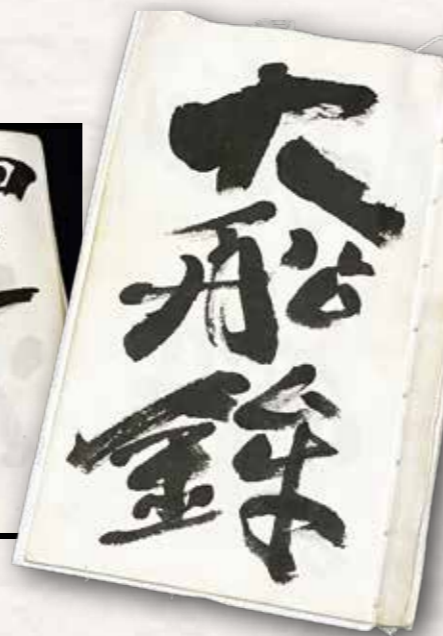 大船鉾